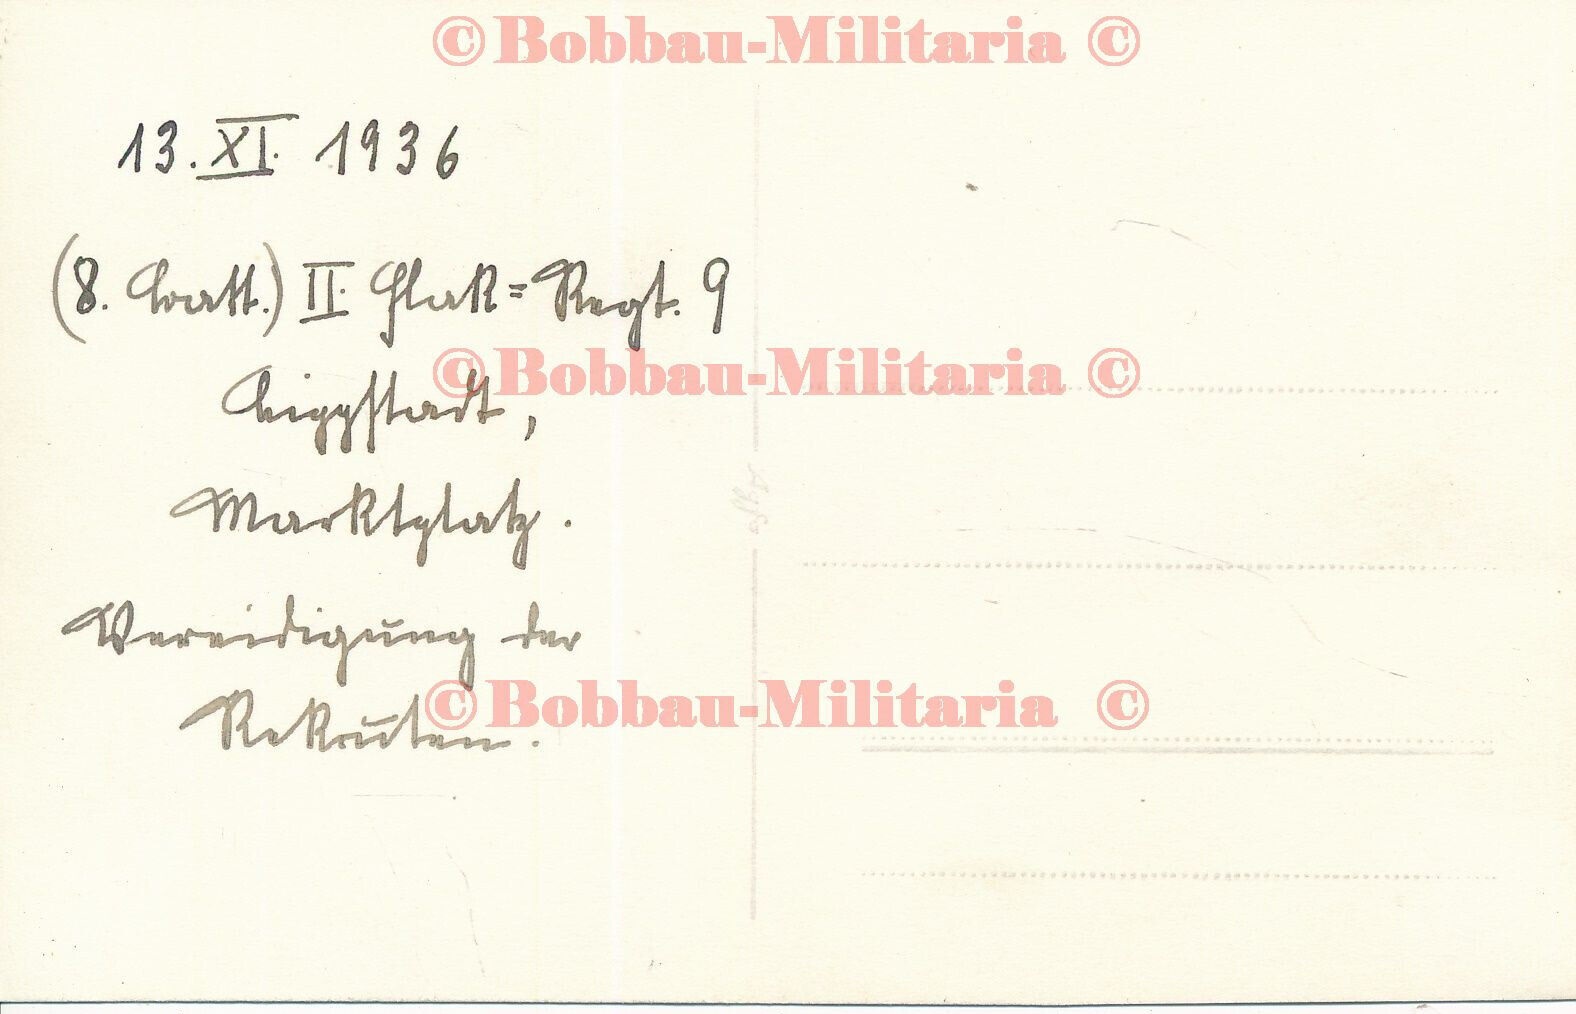 © Bobbau-Militaria ©
13. XI. 1936
(8. Batt.) II. Flak=Regt. 9
© Bobbau-Militaria ©
Lippstadt,
Marktplatz.
Vereidigung der
© Bobbau-Militaria ©
Rekruten.